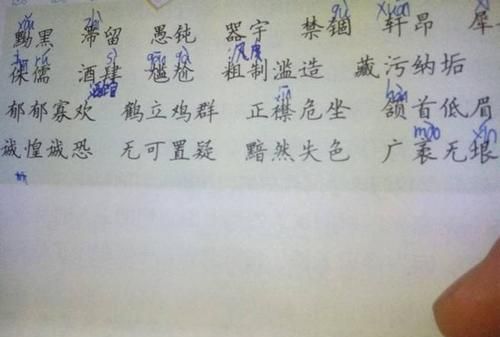 yǒu zhì gù xuān
黝黑 滞留 愚钝 器宇 禁锢 轩昂 犀
zhū rú sì gān gà 风度
侏儒 酒肆 尴尬 粗制滥造 藏污纳垢
jīn hàn
郁郁寡欢 鹤立鸡群 正襟危坐 颔首低眉
mào yín
诚惶诚恐 无可置疑 黯然失色 广袤无垠